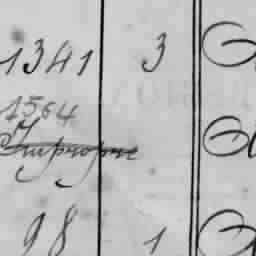 1341 3
1564
Impropre
98 1